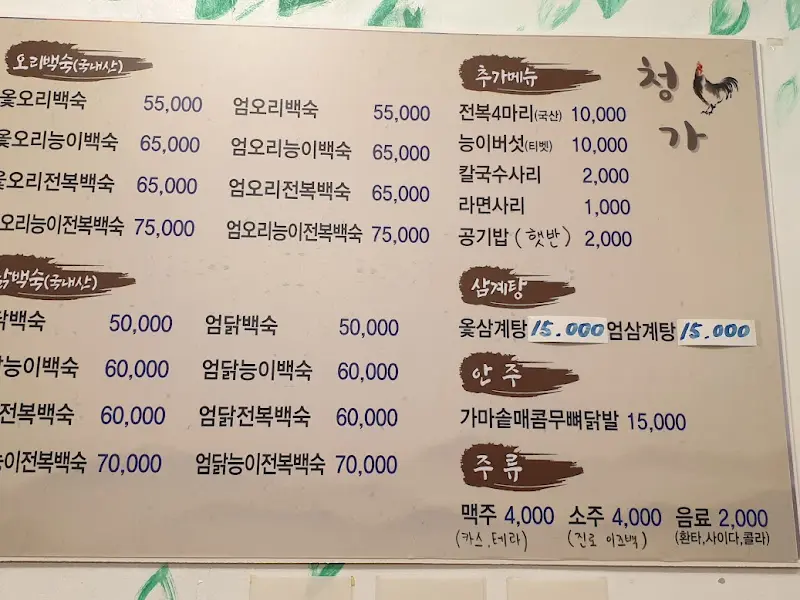 오리백숙(국내산)
옻오리백숙 55,000 엄오리백숙 55,000
옻오리능이백숙 65,000 엄오리능이백숙 65,000
옻오리전복백숙 65,000 엄오리전복백숙 65,000
오리능이전복백숙 75,000 엄오리능이전복백숙 75,000
닭백숙(국내산)
닭백숙 50,000 엄닭백숙 50,000
닭능이백숙 60,000 엄닭능이백숙 60,000
전복백숙 60,000 엄닭전복백숙 60,000
능이전복백숙 70,000 엄닭능이전복백숙 70,000
추가메뉴
전복4마리(국산) 10,000
능이버섯(티벳) 10,000
칼국수사리 2,000
라면사리 1,000
공기밥 (햇반) 2,000
삼계탕
옻삼계탕 15.000 엄삼계탕 15.000
안주
가마솥매콤무뼈닭발 15,000
주류
맥주 4,000 소주 4,000 음료 2,000
(카스.테라) (진로 이즈백) (환타,사이다,콜라)
청가